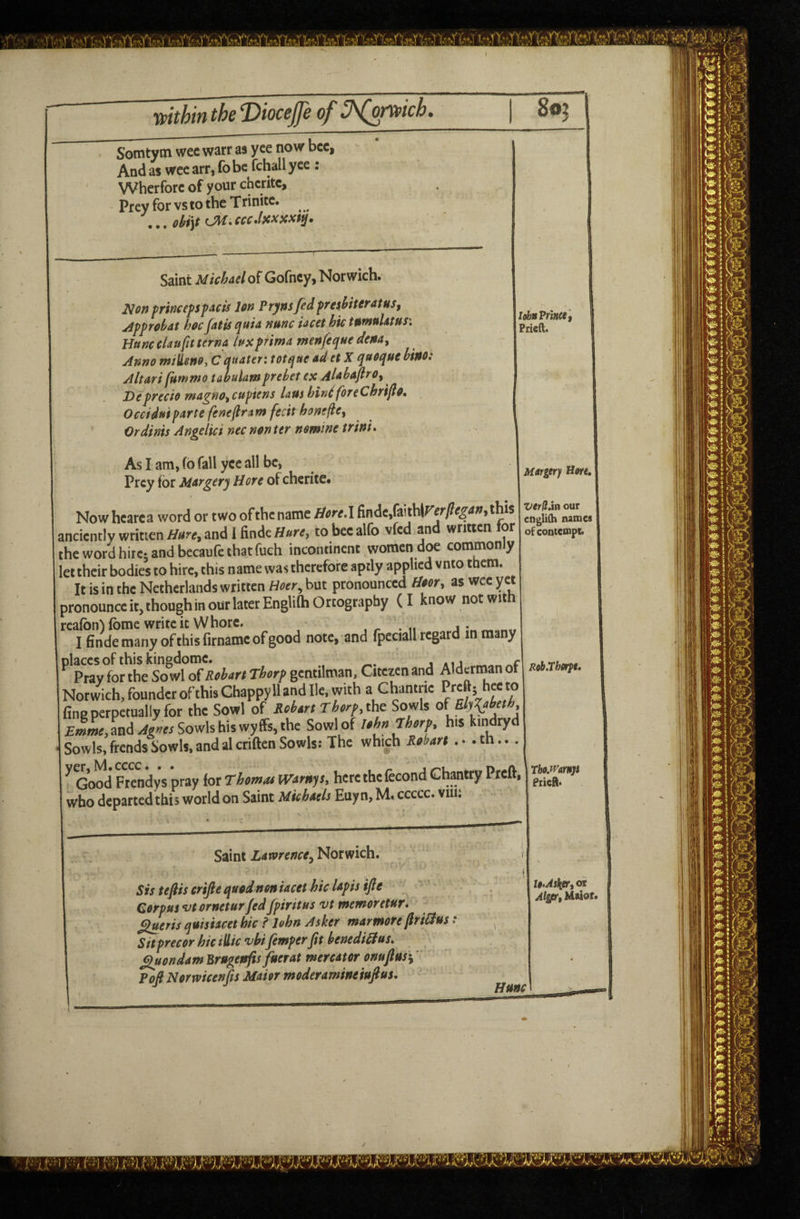 within the Diocesse of Norwich. | 803
Somtym wee warr as yee now bee,
And as wee arr, so be schall yee :
Wherfore of your cherite,
Prey for vs to the Trinite.
... obijt M. ccc.lxxxxiij.
Saint Michael of Gosney, Norwich.
Non princeps pacis Ion Pryns sed presbiteratus,
Approbat hoc satis quia nunc iacet hic tumulatus:
Hunc clausit terna lux prima mense que dena,
Anno milleno, C quater: totque ad et X quoque bino:
Altari summo tabulam prebet ex Alabastro,
De precio magno, cupiens laus hinc fore Christo.
Occidui parte fenestram fecit honeste,
Ordinis Angelici nec non ter nomine trini.
Iohn Prince,
Priest.
As I am, so sall yee all be,
Prey for Margery Hore of cherite.
Margery Hore.
Now heare a word or two of the name Hore. I finde, saith Verstegan, this
anciently written Hure, and I finde Hure, to bee also vsed and written for
the word hire; and because that such incontinent women doe commonly
let their bodies to hire, this name was therefore aptly applied vnto them.
Verst. in our
english names
of contempt.
It is in the Netherlands written Hoer, but pronounced Hoor, as wee yet
pronounce it, though in our later English Ortography ( I know not with
reason) some write it Whore.
I finde many of this sirname of good note, and speciall regard in many
places of this kingdome.
Pray for the Sowl of Robart Thorp gentilman, Citezen and Alderman of
Norwich, founder of this Chappyll and Ile, with a Chantrie Prest; hee to
sing perpetually for the Sowl of Robart Thorp, the Sowls of Elyzabeth,
Emme, and Agnes Sowls his wyffs, the Sowl of Iohn Thorp, his kindryd
Sowls, frends Sowls, and al cristen Sowls: The which Robart .. . th.. .
yer, M. cccc. . .
Rob. Thorpe.
Good Frendys pray for Thomas Warnys, here the second Chantry Prest,
who departed this world on Saint Michaels Euyn, M. ccccc. viii.
Tho. Warnys
Priest.
Saint Lawrence, Norwich.
Sis testis criste quod non iacet hic lapis iste
Corpus vt ornetur sed spiritus vt memoretur.
Queris quis iacet hic ? Iohn Asker marmore strictus :
Sit precor hic illic vbi semper sit benedictus.
Quondam Brugensis fuerat mercator onustus;
Post Norwicensis Maior moderamine iustus.
Io. Asker, or
Alger, Maior.
Hunc